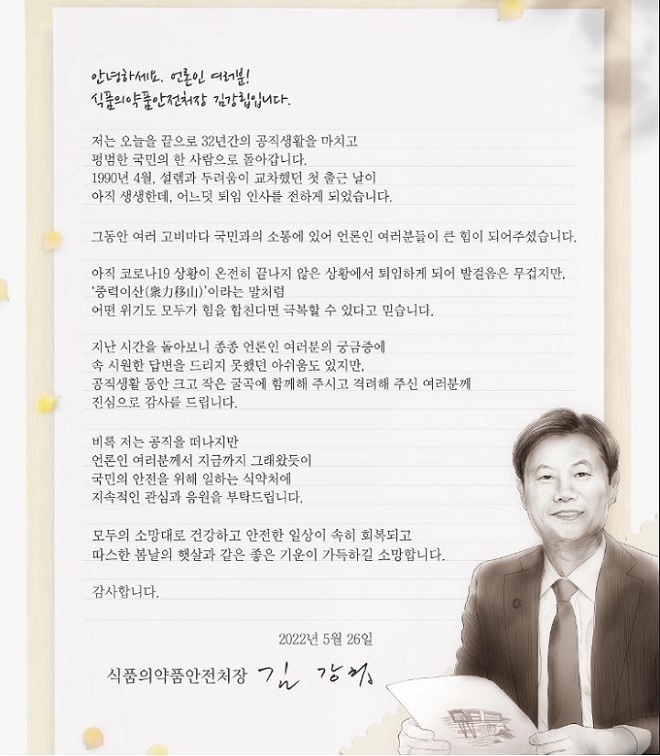 안녕하세요. 언론인 여러분!
식품의약품안전처장 김강립입니다.
저는 오늘을 끝으로 32년간의 공직생활을 마치고
평범한 국민의 한 사람으로 돌아갑니다.
1990년 4월, 설렘과 두려움이 교차했던 첫 출근 날이
아직 생생한데, 어느덧 퇴임 인사를 전하게 되었습니다.
그동안 여러 고비마다 국민과의 소통에 있어 언론인 여러분들이 큰 힘이 되어주셨습니다.
아직 코로나19 상황이 온전히 끝나지 않은 상황에서 퇴임하게 되어 발걸음은 무겁지만,
‘중력이산(衆力移山)’이라는 말처럼
어떤 위기도 모두가 힘을 합친다면 극복할 수 있다고 믿습니다.
지난 시간을 돌아보니 종종 언론인 여러분의 궁금증에
속 시원한 답변을 드리지 못했던 아쉬움도 있지만,
공직생활 동안 크고 작은 굴곡에 함께해 주시고 격려해 주신 여러분께
진심으로 감사를 드립니다.
비록 저는 공직을 떠나지만
언론인 여러분께서 지금까지 그래왔듯이
국민의 안전을 위해 일하는 식약처에
지속적인 관심과 응원을 부탁드립니다.
모두의 소망대로 건강하고 안전한 일상이 속히 회복되고
따스한 봄날의 햇살과 같은 좋은 기운이 가득하길 소망합니다.
감사합니다.
2022년 5월 26일
식품의약품안전처장 김 강립